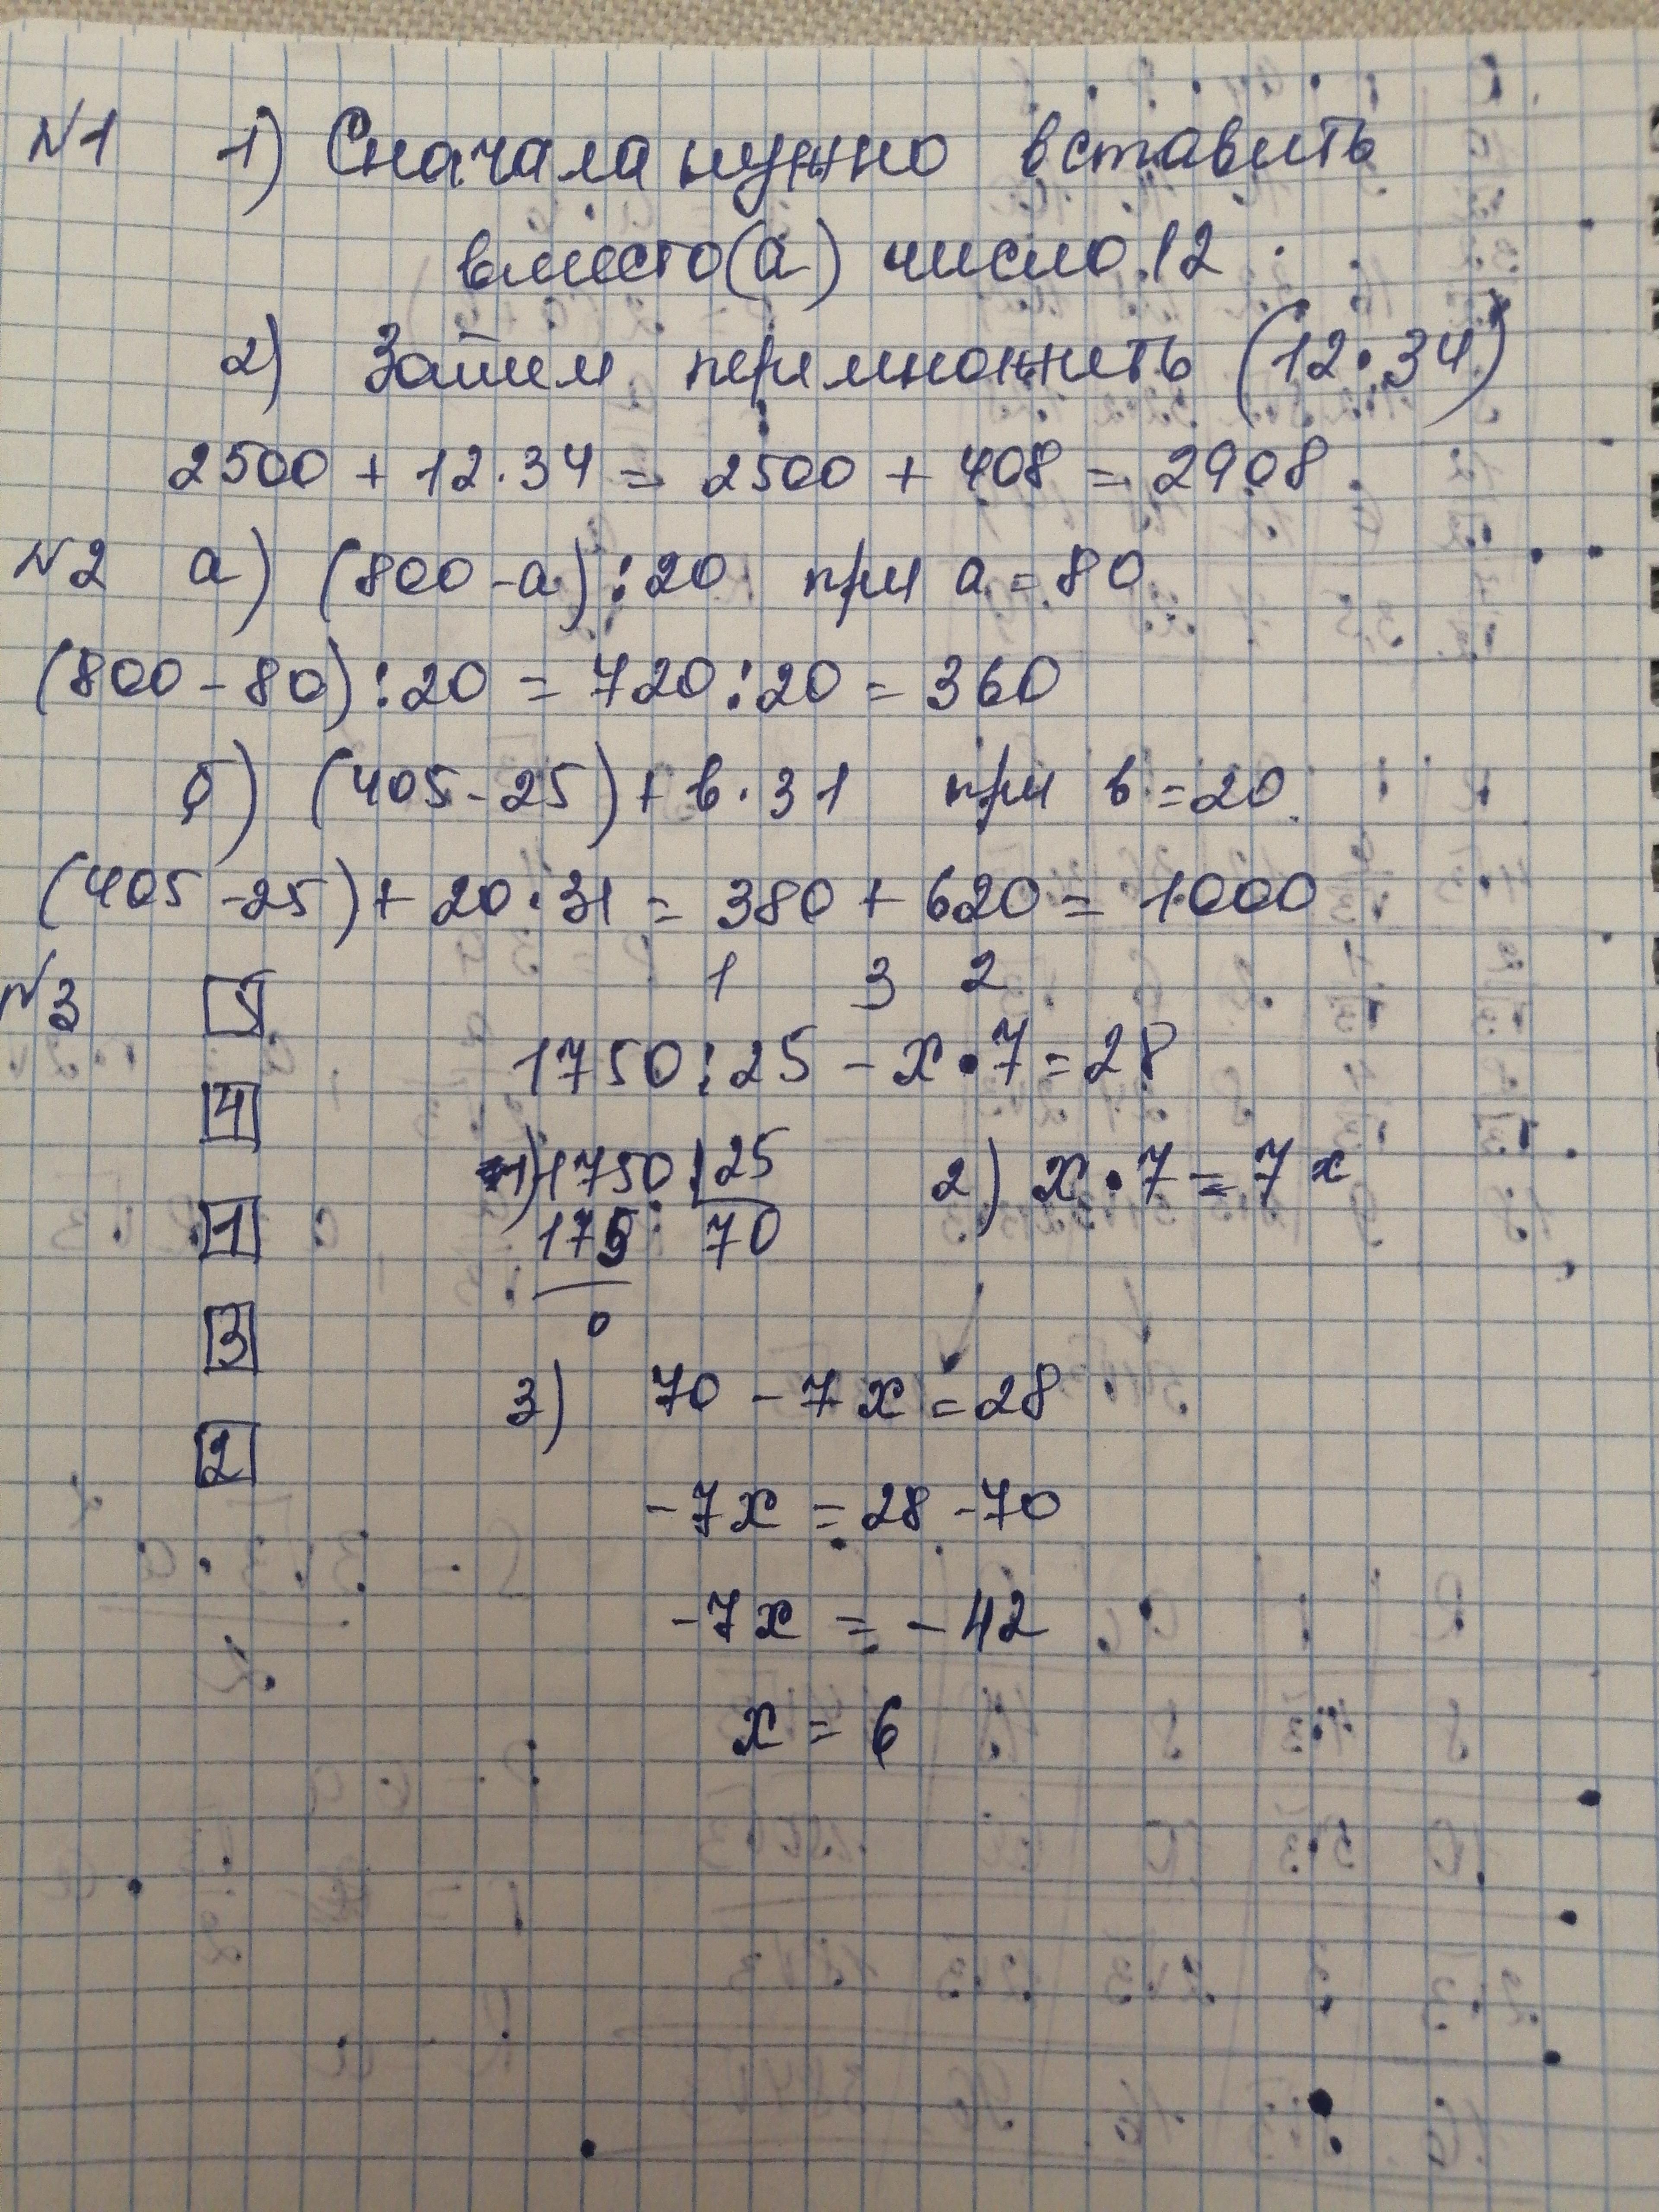 №1 1) Сначала нужно вставить
вместо (а) число 12
2) Затем перемножить (12·34)
2500 + 12·34 = 2500 + 408 = 2908
№2 а) (800 - а) : 20 при а = 80
(800 - 80) : 20 = 720 : 20 = 360
б) (405 - 25) + в · 31 при в = 20
(405 - 25) + 20 · 31 = 380 + 620 = 1000
№3 5
1 3 2
1750 : 25 - x · 7 = 28
4
1) 1750 25 2) x · 7 = 7x
1 175 70
0
3
3) 70 - 7x = 28
2
-7x = 28 - 70
-7x = -42
x = 6